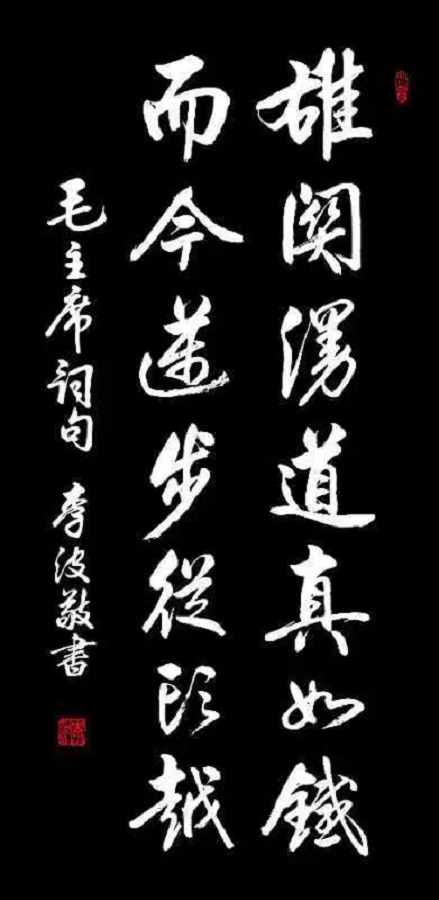 雄関漫道真如鐵
而今邁步從頭越
毛主席詞句 李波敬書